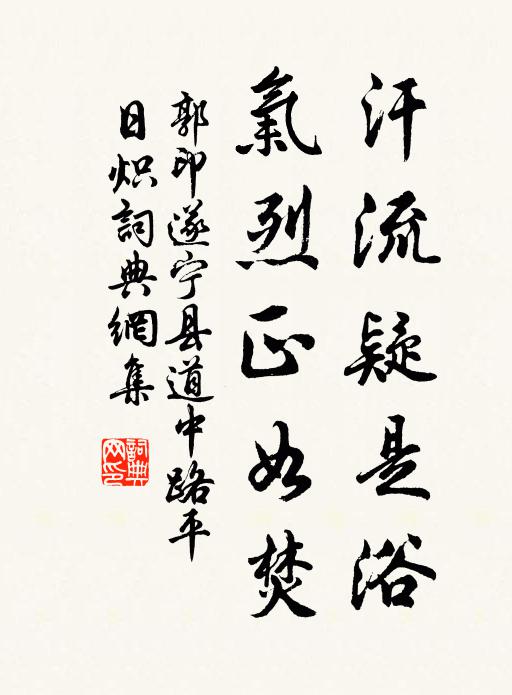 汗流疑是浴
氣烈正如焚
郭印遂宁县道中路平
日炽詞典網集
詞典網印